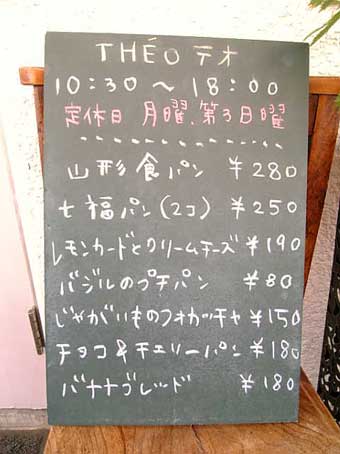 THÉO テオ
10:30〜18:00
定休日 月曜、第3日曜
山形食パン ¥280
七福パン(2コ) ¥250
レモンカードとクリームチーズ ¥190
バジルのプチパン ¥80
じゃがいものフォカッチャ ¥150
チョコ&チェリーパン ¥180
バナナブレッド ¥180